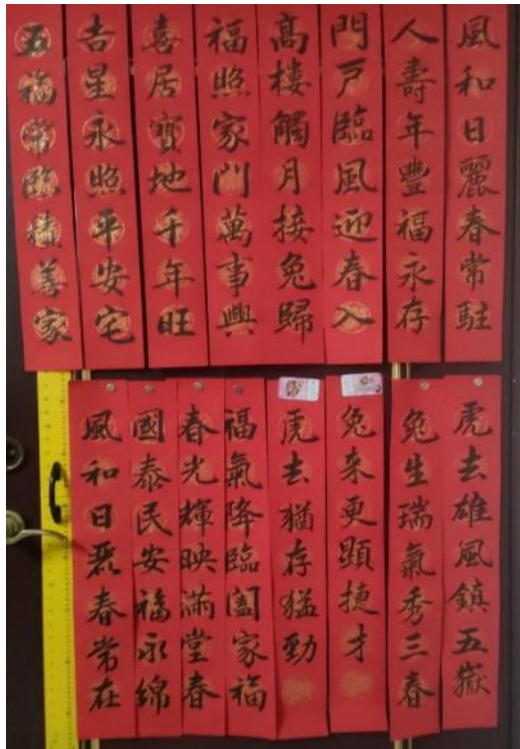 風和日麗春常駐
人壽年豐福永存
門戶臨風迎春入
高樓觸月接兔歸
福照家門萬事興
喜居寶地千年旺
吉星永照平安宅
五福常臨積善家
虎去雄風鎮五嶽
兔生瑞氣秀三春
兔来更顯捷才
虎去猶存猛勁
福氣降臨闔家福
春光輝映滿堂春
國泰民安福永綿
風和日麗春常在